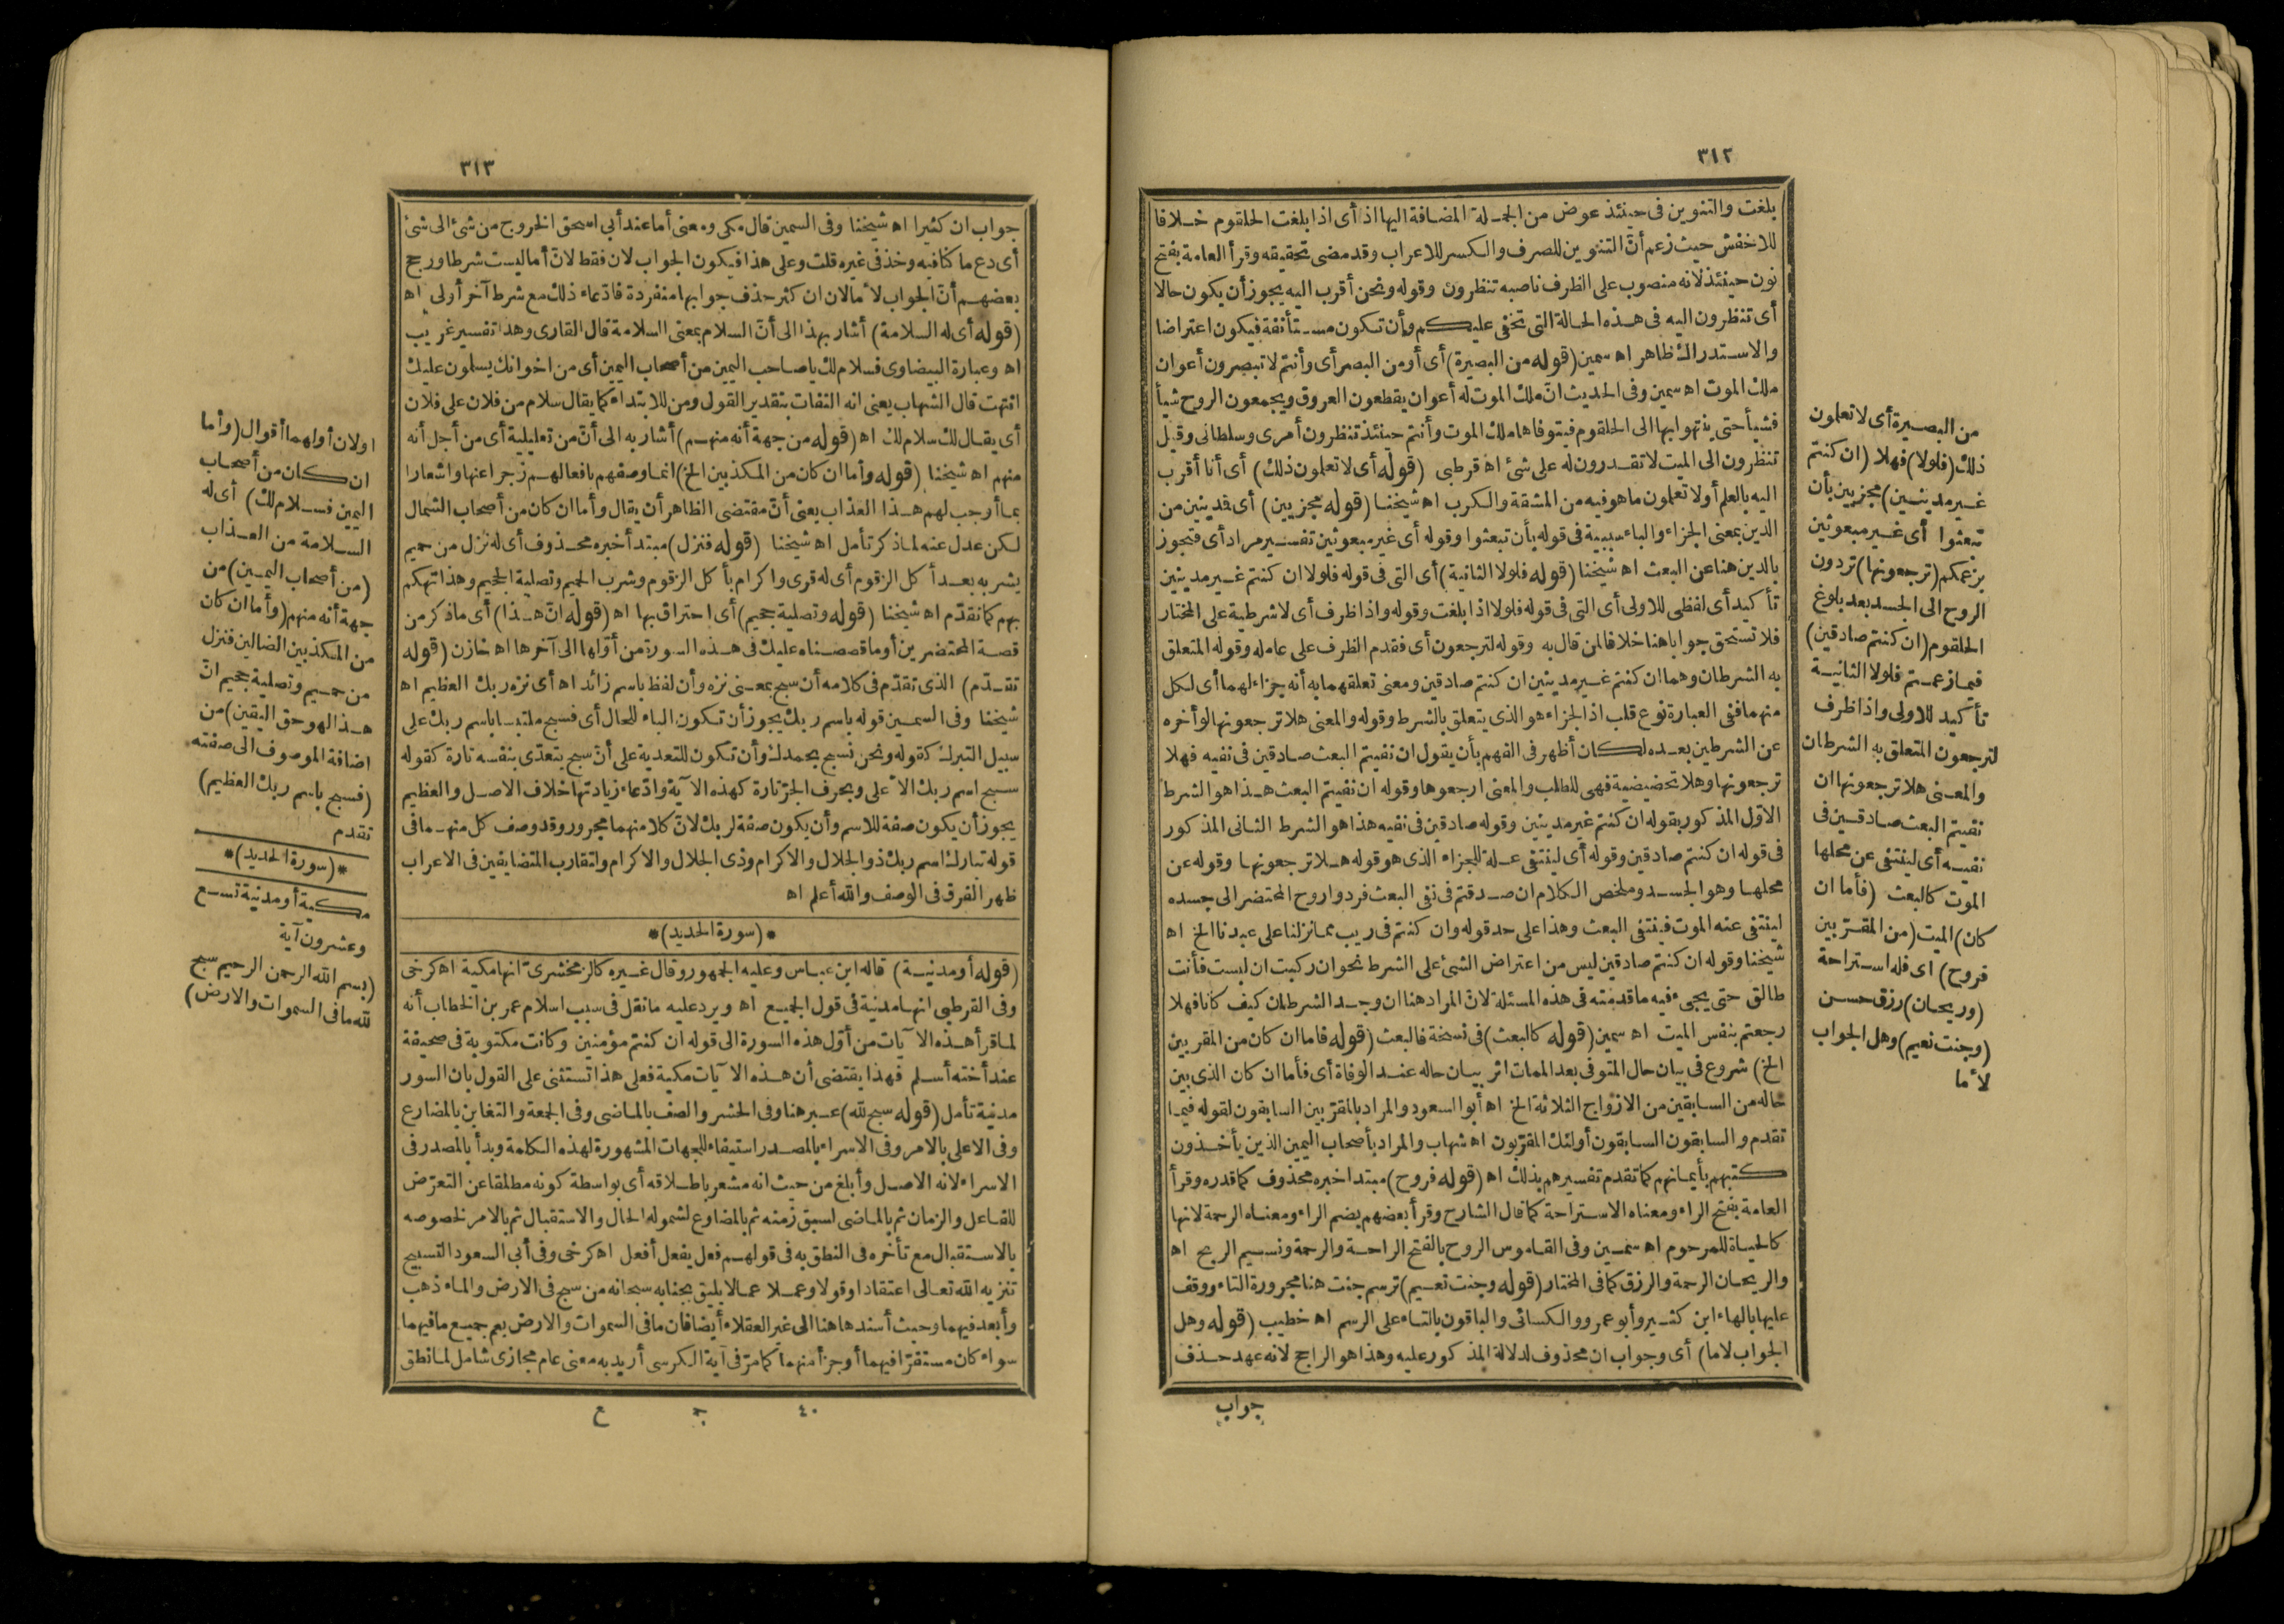 ٣١٢
بلغت والتنوين في حينئذ عوض من الجملة المضافة اليها اذ أى اذا بلغت الحلقوم خلافا
للاخفش حيث زعم أنّ التنوين للصرف والكسر للاعراب وقد مضى تحقيقه وقرأ العامة بفتح
نون حينئذ لانه منصوب على الظرف ناصبه تنظرون وقوله ونحن أقرب اليه يجوز أن يكون حالا
أى تنظرون اليه فى هذه الحالة التى تخفى عليكم وأن تكون مستأنفة فيكون اعتراضا
والاستدراك ظاهر اه سمين (قوله من البصيرة) أى أو من البصر أى وأنتم لا تبصرون أعوان
ملك الموت اه سمين وفى الحديث انّ ملك الموت له أعوان يقطعون العروق ويجمعون الروح شيأ
فشيأ حتى ينتهوا بها الى الحلقوم فيتوفاها ملك الموت وأنتم حينئذ تنظرون أمرى وسلطانى وقيل
تنظرون الى الميت لا تقدرون له على شئ اه قرطبى (قوله أى لا تعلمون ذلك) أى أنا أقرب
اليه بالعلم أو لا تعلمون ما هو فيه من المشقة والكرب اه شيخنا (قوله مجزيين) أى فدينين من
الدين بمعنى الجزاء والباء سببية فى قوله بأن تبعثوا وقوله أى غير مبعوثين تفسير مراد أى فتجوز
بالدين هنا عن البعث اه شيخنا (قوله فلولا الثانية) أى التى فى قوله فلولا ان كنتم غير مدينين
تأكيد أى لفظى للاولى أى التى فى قوله فلولا اذا بلغت وقوله واذا ظرف أى لا شرطية على المختار
فلا تستحق جوابا هنا خلافا لمن قال به وقوله لترجعون أى فقدم الظرف على عامله وقوله المتعلق
به الشرطان وهما ان كنتم غير مدينين ان كنتم صادقين ومعنى تعلقهما به أنه جزاء لهما أى لكل
منهما ففى العبارة نوع قلب اذ الجزاء هو الذى يتعلق بالشرط وقوله والمعنى هلا ترجعونها لو أخره
عن الشرطين بعده لكان أظهر فى الفهم بأن يقول ان نفيتم البعث صادقين فى نفيه فهلا
ترجعونها وهلا تحضيضية فهى للطلب والمعنى ارجعوها وقوله ان نفيتم البعث هذا هو الشرط
الاوّل المذكور بقوله ان كنتم غير مدينين وقوله صادقين فى نفيه هذا هو الشرط الثانى المذكور
فى قوله ان كنتم صادقين وقوله أى لينتفى علة للجزاء الذى هو قوله هلا ترجعونها وقوله عن
محلها وهو الجسد وملخص الكلام ان صدقتم فى نفى البعث فردوا روح المحتضر الى جسده
لينتفى عنه الموت فينتفى البعث وهذا على حد قوله وان كنتم فى ريب مما نزلنا على عبدنا الخ اه
شيخنا وقوله ان كنتم صادقين ليس من اعتراض الشئ على الشرط نحو ان ركبت ان لبست فأنت
طالق حتى يجىء فيه ما قدمته فى هذه المسئلة لانّ المراد هنا ان وجد الشرطان كيف كانا فهلا
رجعتم بنفس الميت اه سمين (قوله كالبعث) فى نسخة فالبعث (قوله فاما ان كان من المقربين
الخ) شروع فى بيان حال المتوفى بعد الممات اثر بيان حاله عند الوفاة أى فأما ان كان الذى بين
حاله من السابقين من الازواج الثلاثة الخ اه أبو السعود والمراد بالمقرّبين السابقون لقوله فيما
تقدم والسابقون السابقون أولئك المقرّبون اه شهاب والمراد بأصحاب اليمين الذين يأخذون
كتبهم بأيمانهم كما تقدم تفسيرهم بذلك اه (قوله فروح) مبتدا خبره محذوف كما قدره وقرأ
العامة بفتح الراء ومعناه الاستراحة كما قال الشارح وقرأ بعضهم بضم الراء ومعناه الرحمة لانها
كالحياة للمرحوم اه سمين وفى القاموس الروح بالفتح الراحة والرحمة ونسيم الريح اه
والريحان الرحمة والرزق كما فى المختار (قوله وجنت نعيم) ترسم جنت هنا مجرورة التاء ووقف
عليها بالهاء ابن كثير وأبو عمرو والكسائى والباقون بالتاء على الرسم اه خطيب (قوله وهل
الجواب لاما) أى وجواب ان محذوف لدلالة المذكور عليه وهذا هو الراجح لانه عهد حذف
جواب
من البصيرة أى لا تعلمون
ذلك (فلولا) فهلا (ان كنتم
غير مدينين) مجزيين بأن
تبعثوا أى غير مبعوثين
بزعمكم (ترجعونها) تردون
الروح الى الجسد بعد بلوغ
الحلقوم (ان كنتم صادقين)
فيما زعمتم فلولا الثانية
تأكيد للاولى واذا ظرف
لترجعون المتعلق به الشرطان
والمعنى هلا ترجعونها ان
نفيتم البعث صادقين فى
نفيه أى لينتفى عن محلها
الموت كالبعث (فأما ان
كان) الميت (من المقرّبين
فروح) اى فله استراحة
(وريحان) رزق حسن
(وجنت نعيم) وهل الجواب
لأما
٣١٣
جواب ان كثيرا اه شيخنا وفى السمين قال مكى ومعنى أما عند أبى اسحق الخروج من شئ الى شئ
أى دع ما كنا فيه وخذ فى غيره قلت وعلى هذا فيكون الجواب لان فقط لانّ أما ليست شرطا ورجح
بعضهم أنّ الجواب لأما لان ان كثر حذف جوابها منفردة فادّعاء ذلك مع شرط آخر أولى اه
(قوله أى له السلامة) أشار بهذا الى أنّ السلام بمعنى السلامة قال القارى وهذا تفسير غريب
اه وعبارة البيضاوى فسلام لك يا صاحب اليمين من أصحاب اليمين أى من اخوانك يسلمون عليك
انتهت قال الشهاب يعنى انه التفات بتقدير القول ومن للابتداء كما يقال سلام من فلان على فلان
أى يقال لك سلام لك اه (قوله من جهة أنه منهم) أشار به الى أنّ من تعليلية أى من أجل أنه
منهم اه شيخنا (قوله وأما ان كان من المكذبين الخ) انما وصفهم بافعالهم زجرا عنها واشعارا
بما أوجب لهم هذا العذاب يعنى أنّ مقتضى الظاهر أن يقال وأما ان كان من أصحاب الشمال
لكن عدل عنه لما ذكر تأمل اه شيخنا (قوله فنزل) مبتدأ خبره محذوف أى له نزل من حميم
يشربه بعد أكل الزقوم أى له قرى واكرام بأكل الزقوم وشرب الحميم وتصلية الجحيم وهذا تهكم
بهم كما تقدّم اه شيخنا (قوله وتصلية جحيم) أى احتراق بها اه (قوله انّ هذا) أى ما ذكر من
قصة المحتضرين أو ما قصصناه عليك فى هذه السورة من أوّلها الى آخرها اه خازن (قوله
تقدّم) الذى تقدّم فى كلامه أن سبح بمعنى نزه وأن لفظ باسم زائد اه أى نزه ربك العظيم اه
شيخنا وفى السمين قوله باسم ربك يجوز أن تكون الباء للحال أى فسبح ملتبسا باسم ربك على
سبيل التبرك كقوله ونحن نسبح بحمدك وأن تكون للتعدية على أنّ سبح يتعدّى بنفسه تارة كقوله
سبح اسم ربك الأعلى وبحرف الجرّ تارة كهذه الآية وادّعاء زيادتها خلاف الاصل والعظيم
يجوز أن يكون صفة للاسم وأن يكون صفة لربك لانّ كلا منهما مجرور وقد وصف كل منهما فى
قوله تبارك اسم ربك ذو الجلال والاكرام وذى الجلال والاكرام ولتقارب المتضايفين فى الاعراب
ظهر الفرق فى الوصف والله أعلم اه
*(سورة الحديد)*
(قوله أو مدنية) قاله ابن عباس وعليه الجمهور وقال غيره كالزمخشرىّ انها مكية اه كرخى
وفى القرطبى انها مدنية فى قول الجميع اه ويرد عليه ما نقل فى سبب اسلام عمر بن الخطاب أنه
لما قرأ هذه الآيات من أوّل هذه السورة الى قوله ان كنتم مؤمنين وكانت مكتوبة فى صحيفة
عند أخته أسلم فهذا يقتضى أن هذه الآيات مكية فعلى هذا تستثنى على القول بان السور
مدنية تأمل (قوله سبح لله) عبر هنا وفى الحشر والصف بالماضى وفى الجمعة والتغابن بالمضارع
وفى الاعلى بالامر وفى الاسراء بالمصدر استيفاء للجهات المشهورة لهذه الكلمة وبدأ بالمصدر فى
الاسراء لانه الاصل وأبلغ من حيث انه مشعر باطلاقه أى بواسطة كونه مطلقا عن التعرّض
للفاعل والزمان ثم بالماضى لسبق زمنه ثم بالمضارع لشموله الحال والاستقبال ثم بالامر لخصوصه
بالاستقبال مع تأخره فى النطق به فى قولهم فعل يفعل أفعل اه كرخى وفى أبى السعود التسبيح
تنزيه الله تعالى اعتقادا وقولا وعملا عما لا يليق بجنابه سبحانه من سبح فى الارض والماء ذهب
وأبعد فيهما وحيث أسند ها هنا الى غير العقلاء أيضا فان ما فى السموات والارض يعم جميع ما فيهما
سواء كان مستقرّا فيهما أو جزأ منهما كما مرّ فى آية الكرسى أريد به معنى عام مجازى شامل لما نطق
٤٠ ج ع
اولان أولهما أقوال (وأما
ان كان من أصحاب
اليمين فسلام لك) أى له
السلامة من العذاب
(من أصحاب اليمين) من
جهة أنه منهم (وأما ان كان
من المكذبين الضالين فنزل
من حميم وتصلية جحيم انّ
هذا لهو حق اليقين) من
اضافة الموصوف الى صفته
(فسبح باسم ربك العظيم)
تقدم
*(سورة الحديد)*
مكية أو مدنية تسع
وعشرون آية
(بسم الله الرحمن الرحيم سبح
لله ما فى السموات والارض)